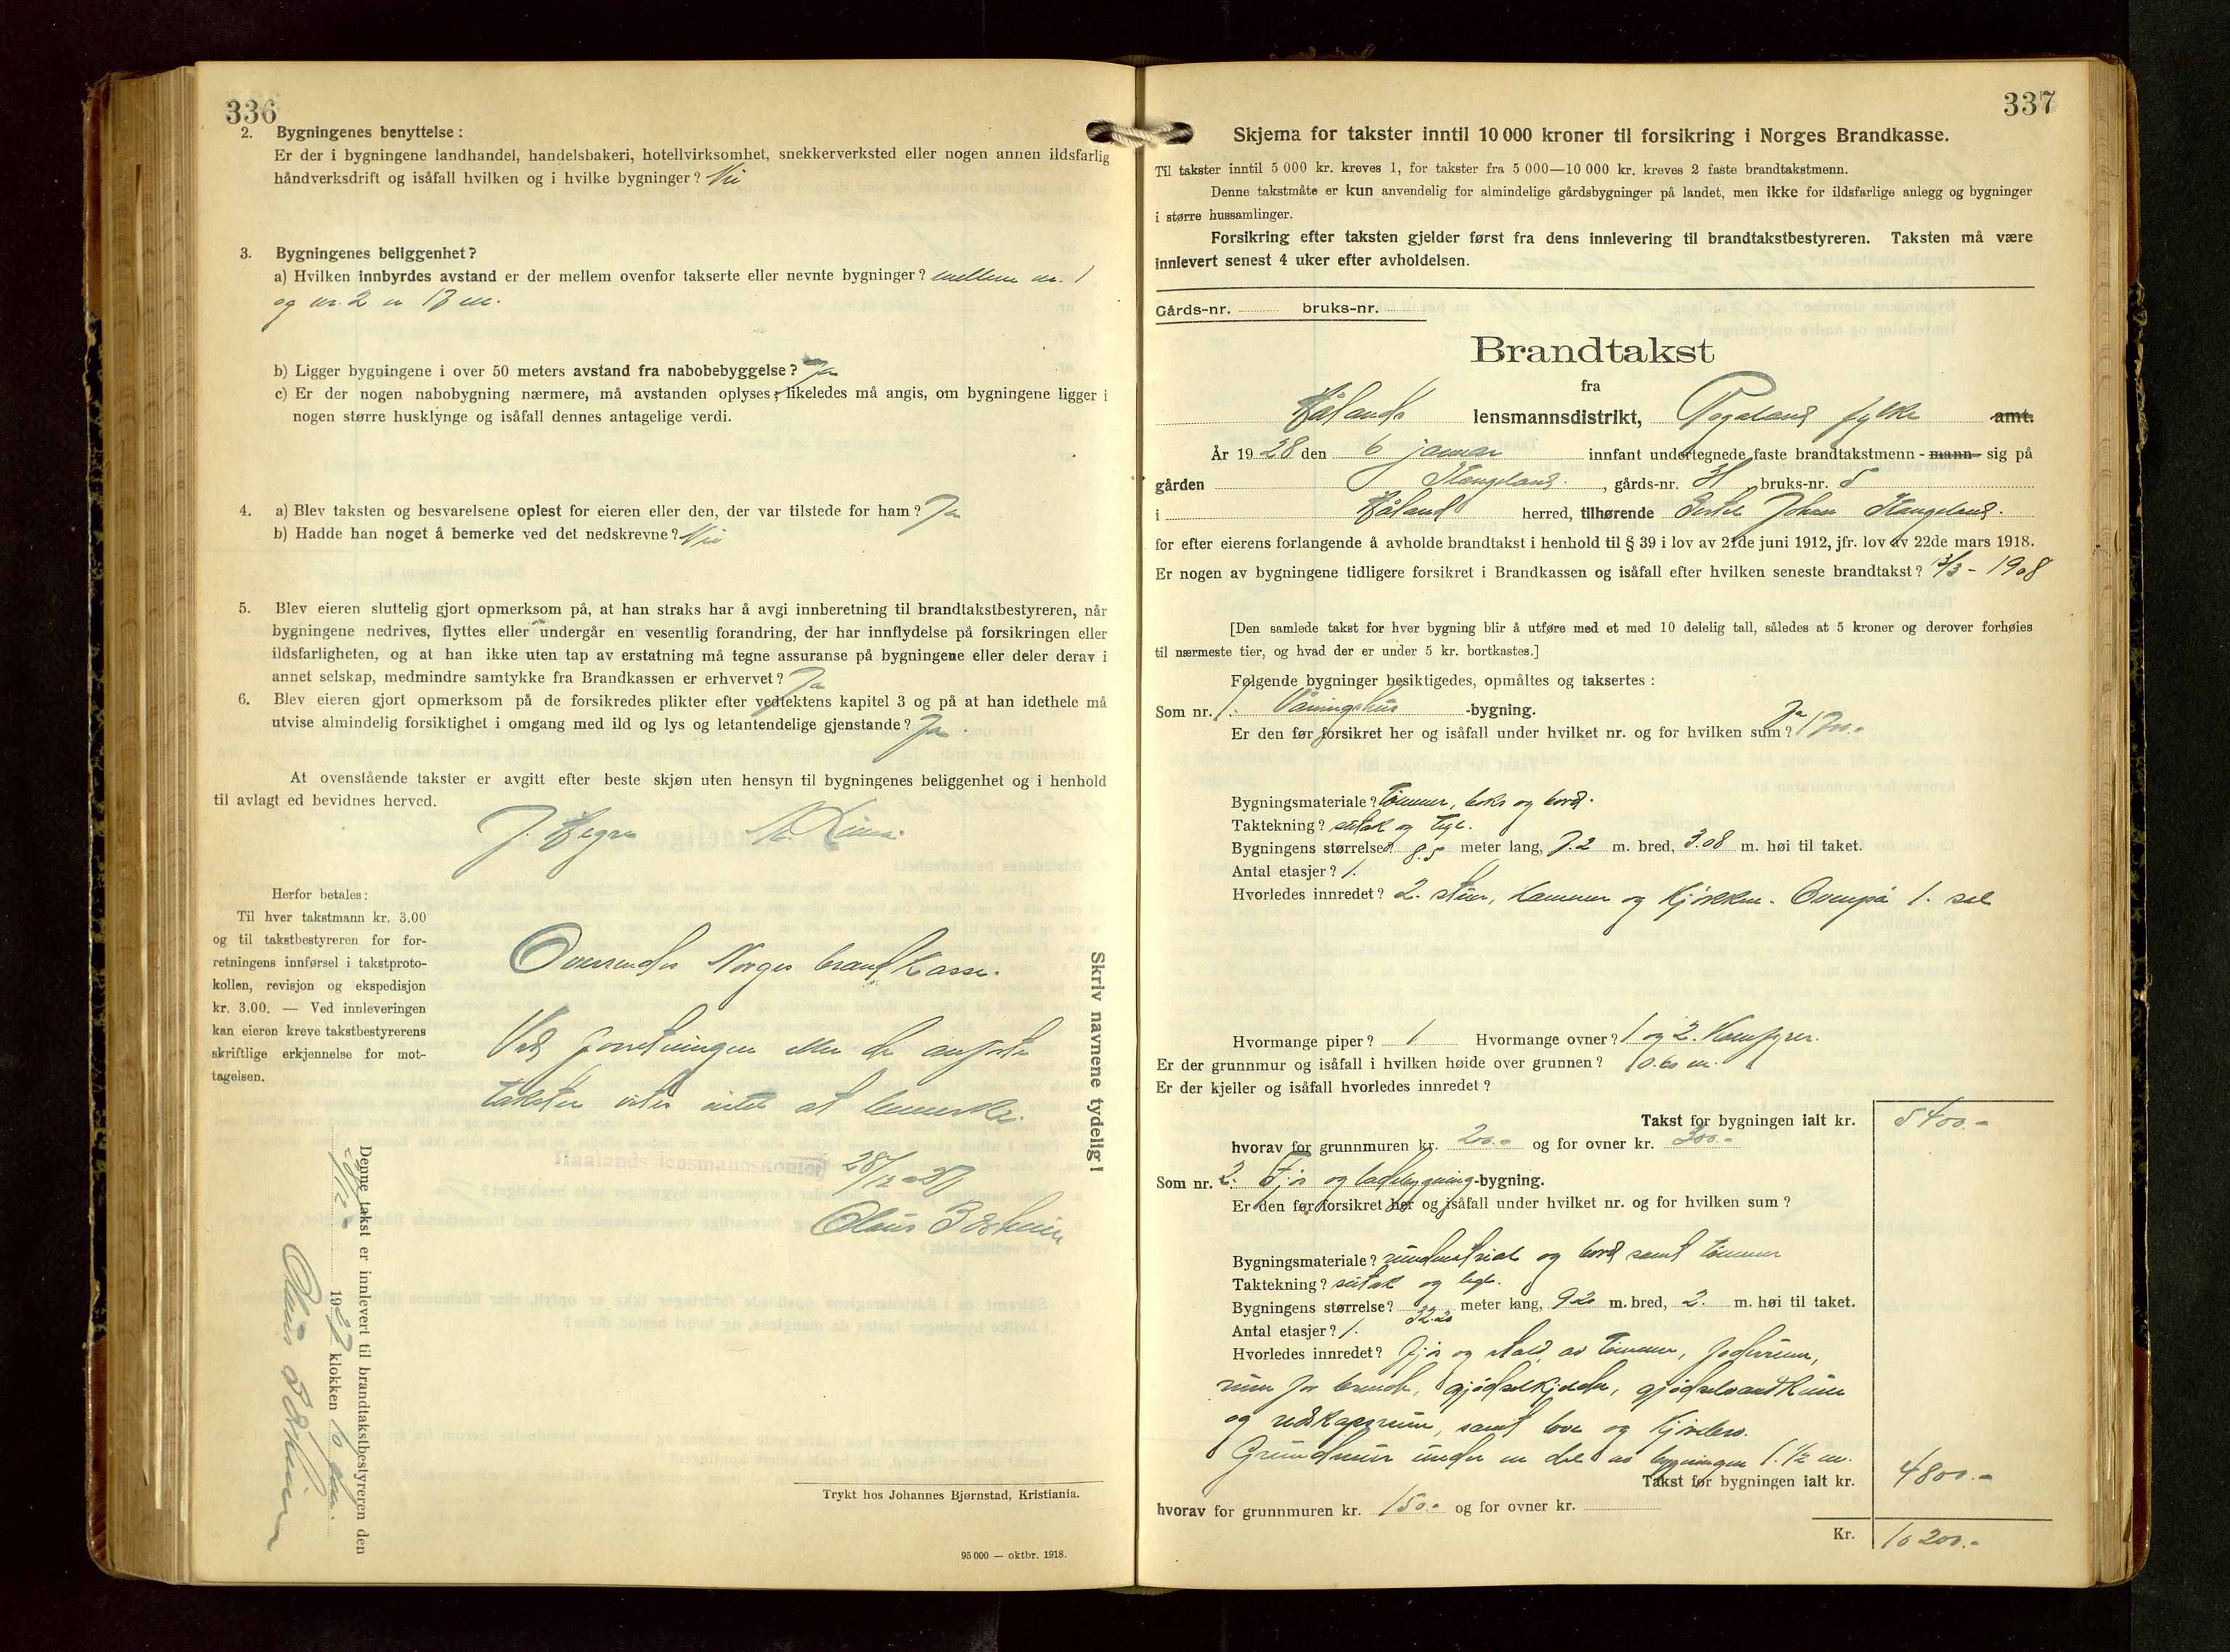 336
2. Bygningenes benyttelse :
Er der i bygningene landhandel, handelsbakeri, hotellvirksomhet, snekkerverksted eller nogen annen ildsfarlig
håndverksdrift og isåfall hvilken og i hvilke bygninger? Nei
3. Bygningenes beliggenhet?
a) Hvilken innbyrdes avstand er der mellem ovenfor takserte eller nevnte bygninger? mellem nr. 1
og nr. 2 er 17 m.
b) Ligger bygningene i over 50 meters avstand fra nabobebyggelse? Ja
c) Er der nogen nabobygning nærmere, må avstanden oplyses; likeledes må angis, om bygningene ligger i
nogen større husklynge og isåfall dennes antagelige verdi.
4. a) Blev taksten og besvarelsene oplest for eieren eller den, der var tilstede for ham? Ja
b) Hadde han noget å bemerke ved det nedskrevne? Nei
5. Blev eieren sluttelig gjort opmerksom på, at han straks har å avgi innberetning til brandtakstbestyreren, når
bygningene nedrives, flyttes eller undergår en vesentlig forandring, der har innflydelse på forsikringen eller
ildsfarligheten, og at han ikke uten tap av erstatning må tegne assuranse på bygningene eller deler derav i
annet selskap, medmindre samtykke fra Brandkassen er erhvervet? Ja
6. Blev eieren gjort opmerksom på de forsikredes plikter efter vedtektens kapitel 3 og på at han idethele må
utvise almindelig forsiktighet i omgang med ild og lys og letantendelige gjenstande? Ja.
At ovenstående takster er avgitt efter beste skjøn uten hensyn til bygningenes beliggenhet og i henhold
til avlagt ed bevidnes herved.
J. Hegre
Herfor betales :
Til hver takstmann kr. 3.00
og til takstbestyreren for for-
retningens innførsel i takstproto-
kollen, revisjon og ekspedisjon
kr. 3.00. — Ved innleveringen
kan eieren kreve takstbestyrerens
skriftlige erkjennelse for mot-
tagelsen.
Oversendes Norges brandkasse.
Ved forretningen eller de anførte
takster vites intet at bemerke.
Haalands lensmannskontor 28/12-27
Olaus
Skriv navnene tydelig!
Denne takst er innlevert til brandtakstbestyreren den
28/12 1927 klokken 10 fm.
Olaus
Trykt hos Johannes Bjørnstad, Kristiania.
95 000 — oktbr. 1918.
337
Skjema for takster inntil 10 000 kroner til forsikring i Norges Brandkasse.
Til takster inntil 5 000 kr. kreves 1, for takster fra 5 000—10 000 kr. kreves 2 faste brandtakstmenn.
Denne takstmåte er kun anvendelig for almindelige gårdsbygninger på landet, men ikke for ildsfarlige anlegg og bygninger
i større hussamlinger.
Forsikring efter taksten gjelder først fra dens innlevering til brandtakstbestyreren. Taksten må være
innlevert senest 4 uker efter avholdelsen.
Gårds-nr. bruks-nr.
Brandtakst
fra
Hålands lensmannsdistrikt, Rogaland fylke amt.
År 1928 den 6 januar innfant undertegnede faste brandtakstmenn - mann- sig på
gården Stangeland. , gårds-nr. 31 , bruks-nr. 5
i Håland herred, tilhørende Bertel Johan Stangeland.
for efter eierens forlangende å avholde brandtakst i henhold til § 39 i lov av 21de juni 1912, jfr. lov av 22de mars 1918.
Er nogen av bygningene tidligere forsikret i Brandkassen og isåfall efter hvilken seneste brandtakst? 1908
[Den samlede takst for hver bygning blir å utføre med et med 10 delelig tall, således at 5 kroner og derover forhøies
til nærmeste tier, og hvad der er under 5 kr. bortkastes.]
Følgende bygninger besiktigedes, opmåltes og taksertes :
Som nr. 1. Våningshus -bygning.
Er den før forsikret her og isåfall under hvilket nr. og for hvilken sum? Ja
Bygningsmateriale? Tømmer, boks og bord.
Taktekning? sutak og tegl.
Bygningens størrelse? 8.5 meter lang, 7.2 m. bred, 3.08 m. høi til taket.
Antal etasjer? 1.
Hvorledes innredet? 2. stuer, kammer og kjøkken. Ovenpå 1. sal
Hvormange piper? 1 Hvormange ovner? 1 og 2. komfyrer.
Er der grunnmur og isåfall i hvilken høide over grunnen? 0.60 m.
Er der kjeller og isåfall hvorledes innredet ?
Takst for bygningen ialt kr. 5400.-
hvorav for grunnmuren kr. 200.- og for ovner kr. 300.-
Som nr. 2. Fjøs og ladebygning-bygning.
Er den før forsikret her og isåfall under hvilket nr. og for hvilken sum ?
Bygningsmateriale? og bord samt tømmer
Taktekning? sutak og tegl.
Bygningens størrelse? 32.20 meter lang, 9.20 m. bred, 2. m. høi til taket.
Antal etasjer? 1.
Hvorledes innredet? Fjøs og stald av tømmer, foderrum,
rum for brende, gjødselkjelder, gjødselvandkum
og redskapsrum, samt love og
Grundmur under en del av bygningen 1. 1/2 m.
Takst for bygningen ialt kr. 4800.-
hvorav for grunnmuren kr. 150.- og for ovner kr.
Kr. 10200.-